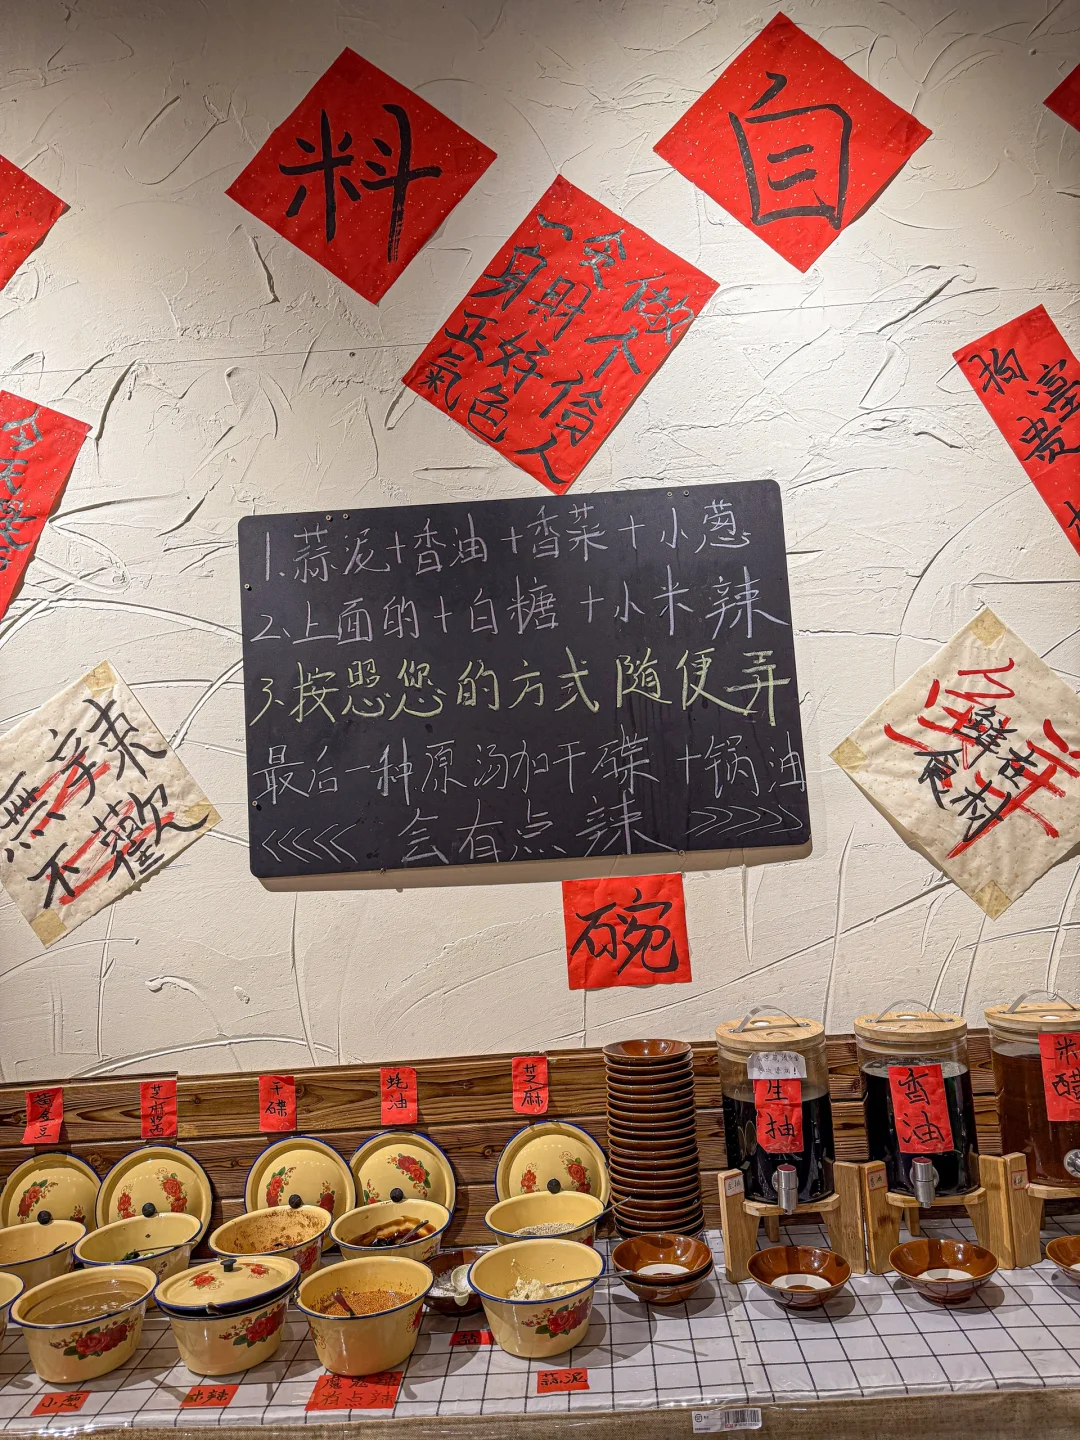 料
自
做大俗人
贪财好色
一身正氣
1.蒜泥+香油+香菜+小葱
2、上面的+白糖+小米辣
3、按照您的方式随便弄
最后一种原汤加干碟+锅油
<<<<< 会有点辣 >>>>>
無辣
不歡
鲜在
食材
碗
黄豆
干碟
蚝油
芝麻
生抽
香油
米醋
小葱
小米辣
有点辣
蒜泥